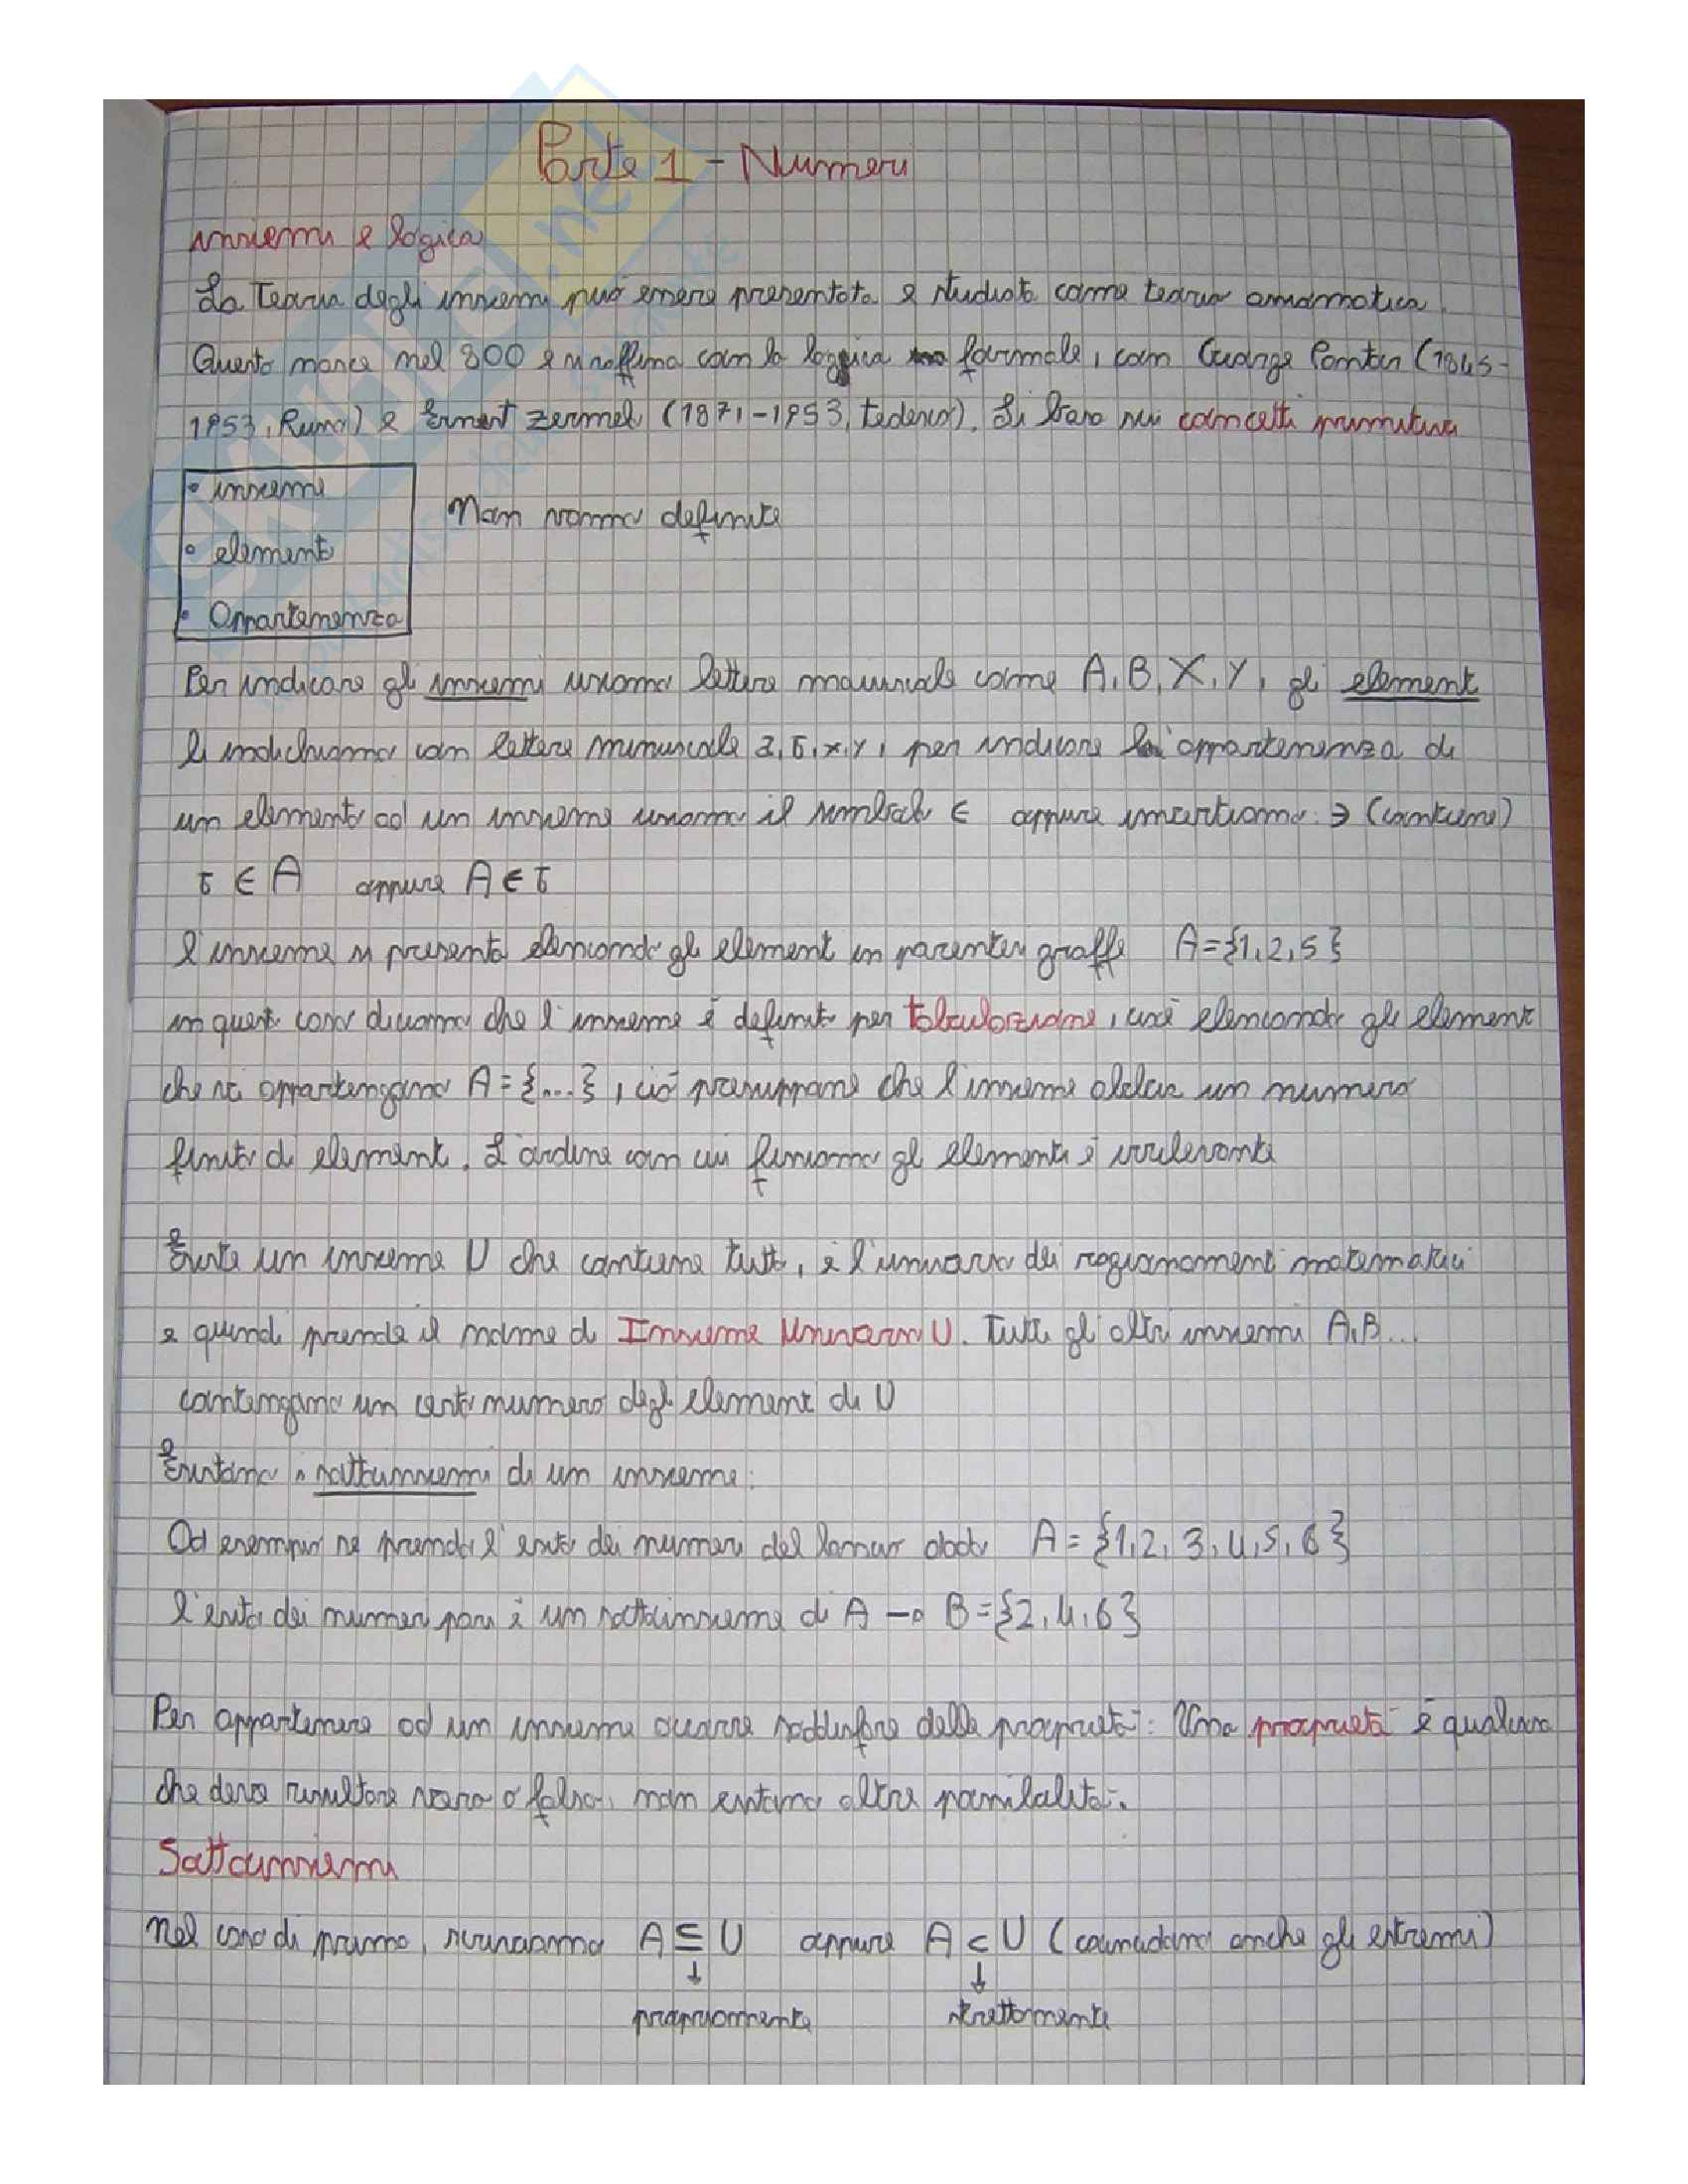 Parte 1 - Numeri
insiemi e logica
La Teoria degli insiemi può essere presentata e studiata come teoria assiomatica.
Questo nasce nel 800 e si raffina con la logica formale, con George Cantor (1845-
1953, Russo) e Ernest Zermel (1871-1953, tedesco). Si basa sui concetti primitivi
• insieme
• elemento
• Appartenenza
Non vanno definite
Per indicare gli insiemi usiamo lettere maiuscole come A, B, X, Y, gli elementi
li indichiamo con lettere minuscole a, b, x, y, per indicare l'appartenenza di
un elemento ad un insieme usiamo il simbolo ∈ oppure invertiamo ∋ (contiene)
b ∈ A oppure A ∋ b
l'insieme si presenta elencando gli elementi in parentesi graffe A={1,2,5}
in questo caso diciamo che l'insieme è definito per tabulazione, cioè elencando gli elementi
che vi appartengono A={...}, ciò presuppone che l'insieme abbia un numero
finito di elementi. L'ordine con cui gli elementi è irrilevante
Esiste un insieme U che contiene tutto, è l'universo dei ragionamenti matematici
e quindi prende il nome di Insieme Universo U. Tutti gli altri insiemi A,B...
contengono un certo numero degli elementi di U
Esistono i sottoinsiemi di un insieme:
Ad esempio se prendo l'esito dei numeri del lancio dado A = {1,2,3,4,5,6}
l'esito dei numeri pari è un sottoinsieme di A → B={2,4,6}
Per appartenere ad un insieme occorre soddisfare delle proprietà: Una proprietà è qualcosa
che deve risultare vero o falso, non esistono altre possibilità.
Sottoinsiemi
Nel caso di prima, scriviamo A ⊆ U oppure A ⊂ U (coincidono anche gli estremi)
↓ ↓
propriamente strettamente